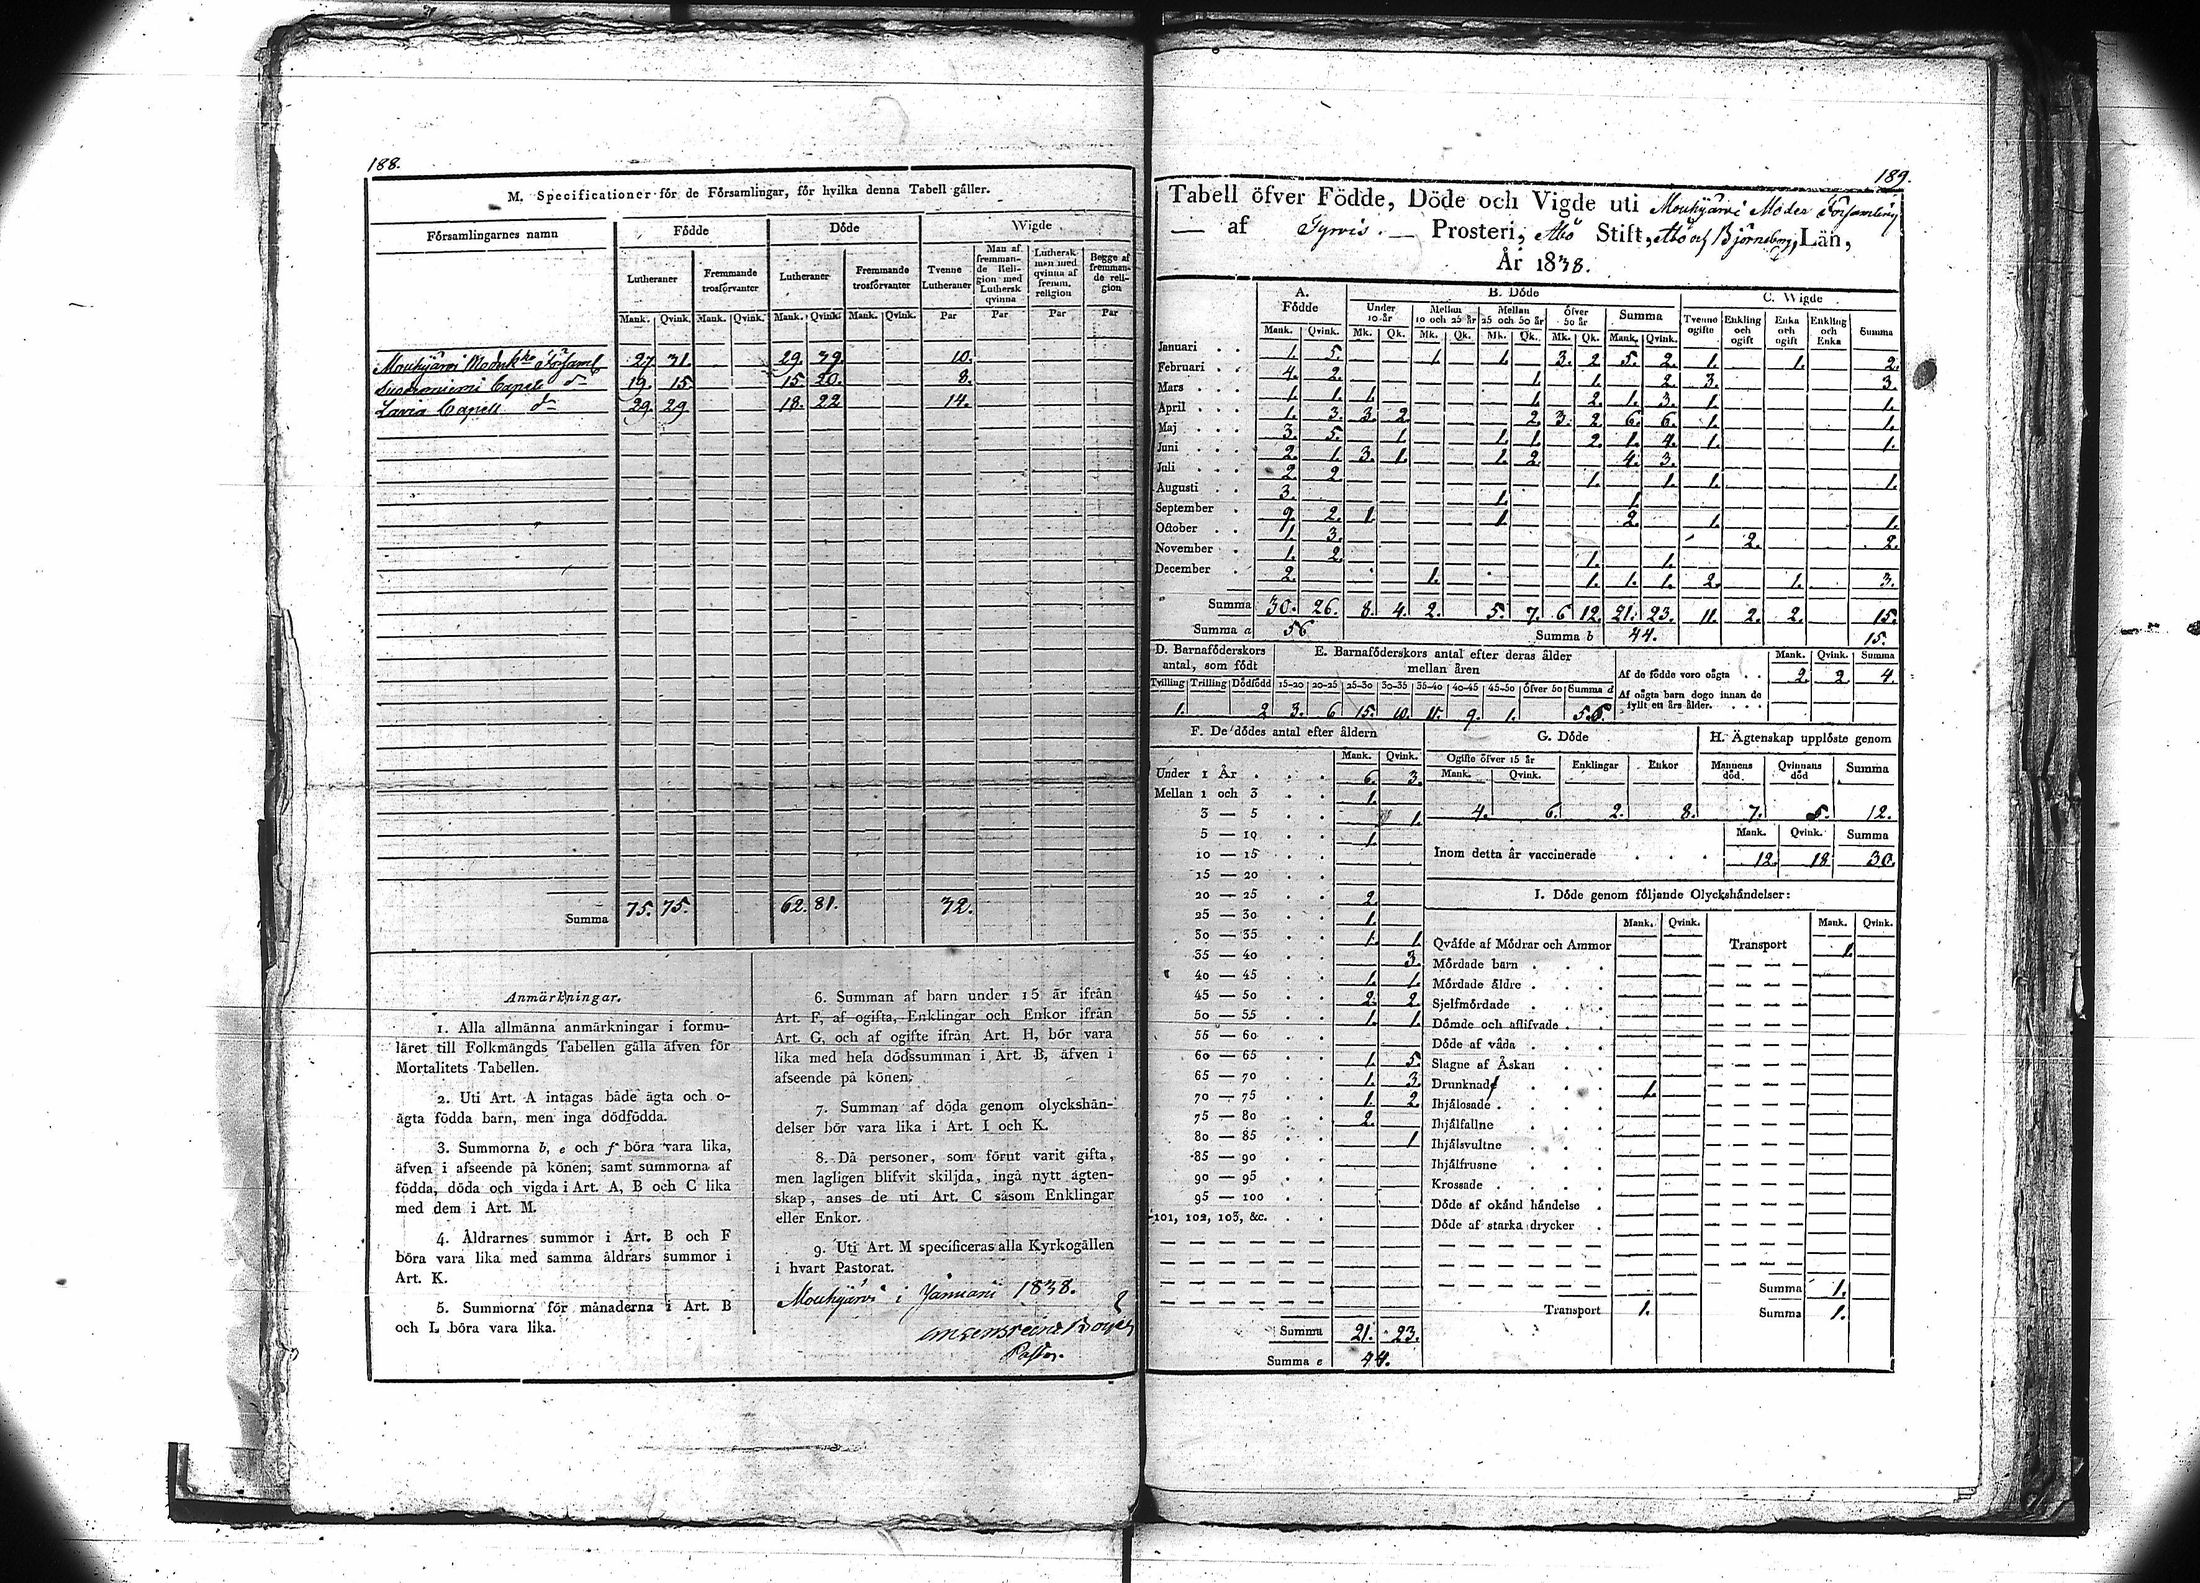 188.
M. Specificationer för de Församlingar, för hvilka denna Tabell gäller.
Församlingarnes namn Födde Döde Wigde
Lutheraner Fremmande trosförvanter Lutheraner Fremmande trosförvanter Tvenne Lutheraner Man af fremmande Religion med Luthersk qvinna Luthersk man med qvinna af fremm. religion Begge af fremmande religion
Mank. Qvink. Mank. Qvink. Mank. Qvink. Mank. Qvink. Par Par Par Par
Mouhijärvi Moderk:ko Församl 27. 31. 29. 39. 10.
Suoniemi Capell d:o 19. 15. 15. 20. 8.
Lavia Capell d:o 29. 29 18. 22 14.
Summa 75. 75. 62. 81. 32.
Anmärkningar.
1. Alla allmänna anmärkningar i formuläret till Folkmängds Tabellen gälla äfven för
Mortalitets Tabellen.
2. Uti Art. A intagas både ägta och o-
ägta födda barn, men inga dödfödda.
3. Summorna b, e och f böra vara lika,
äfven i afseende på könen; samt summorna af
födda, döda och vigda i Art. A, B och C lika
med dem i Art. M.
4. Åldrarnes summor i Art. B och F
böra vara lika med samma åldrars summor i
Art. K.
5. Summorna för månaderna i Art. B
och L böra vara lika.
6. Summan af barn under 15 år ifrån
Art. F, af ogifta, Enklingar och Enkor ifrån
Art. G, och af ogifte ifrån Art. H, bör vara
lika med hela dödssumman i Art. B, äfven i
afseende på könen.
7. Summan af döda genom olyckshän-
delser bör vara lika i Art. I och K.
8. Då personer, som förut varit gifta,
men lagligen blifvit skiljda, ingå nytt ägten-
skap, anses de uti Art. C såsom Enklingar
eller Enkor.
9. Uti Art. M specificeras alla Kyrkogällen
i hvart Pastorat.
Mouhijärvi i Januari 1838.
Pastor.
189.
Tabell öfver Födde, Döde och Vigde uti Mouhijärvi Moder Församling
— af Tyrvis. — Prosteri, Åbo Stift, Åbo och Björneborgs Län,
År 1838.
A. Födde B. Döde C. Wigde
Under 10 år Mellan 10 och 25 år Mellan 25 och 50 år Öfver 50 år Summa Tvenne ogifte Enkling och ogift Enka och ogift Enkling och Enka Summa
Mank. Qvink. Mk. Qk. Mk. Qk. Mk. Qk. Mk. Qk. Mank. Qvink.
Januari 1. 5. 1. 1. 3. 2 5. 2. 1. 1. 2.
Februari 4. 2. 1. 1. 2. 3. 3.
Mars 1. 1. 1. 1. 2. 1. 3. 1. 1.
April 1. 3. 3. 2. 2. 3. 2. 6. 6. 1. 1.
Maj 3. 5. 1. 1. 1. 2. 1. 4. 1. 1.
Juni 2. 1. 3. 1. 1. 2. 4. 3.
Juli 2. 2. 1. 1. 1. 1.
Augusti 3. 1. 1.
September 9. 2. 1. 1. 2. 1. 1.
October 1. 3. 2. 2.
November 1. 2. 1. 1.
December 2. 1. 1. 1. 1. 2. 1. 3.
Summa 30. 26. 8. 4. 2. 5. 7. 6 12. 21. 23. 11. 2. 2. 15.
Summa a 56 Summa b 44. 15.
D. Barnaföderskors antal, som födt
Tvilling Trilling Dödfödd
1. 2
E. Barnaföderskors antal efter deras ålder mellan åren
15-20 20-25 25-30 30-35 35-40 40-45 45-50 öfver 50 Summa d
3. 6 15. 10. 11. 9. 1. 55.
Mank. Qvink. Summa
Af de födde voro oägta 2. 2 4.
Af oägta barn dogo innan de fyllt ett års ålder.
F. De dödes antal efter åldern
Mank. Qvink.
Under 1 År 6. 3.
Mellan 1 och 3 1.
3 — 5 1.
5 — 10 1.
10 — 15
15 — 20
20 — 25 2.
25 — 30 1.
30 — 35 1. 1.
35 — 40 3.
40 — 45 1. 1.
45 — 50 2. 2.
50 — 55 1. 1.
55 — 60
60 — 65 1. 5.
65 — 70 1. 3.
70 — 75 1. 2.
75 — 80 2.
80 — 85 1
85 — 90
90 — 95
95 — 100
101, 102, 103, &c.
Summa 21. 23.
Summa e 44.
G. Döde
Ogifte öfver 15 år Enklingar Enkor
Mank. Qvink.
4. 6. 2. 8.
H. Ägtenskap upplöste genom
Mannens död Qvinnans död Summa
7. 5. 12.
Mank. Qvink. Summa
Inom detta år vaccinerade 12. 18 30.
I. Döde genom följande Olyckshändelser:
Mank. Qvink. Mank. Qvink.
Qväfde af Mödrar och Ammor Transport 1.
Mördade barn
Mördade äldre
Sjelfmördade
Dömde och aflifvade
Döde af våda
Slagne af Åskan
Drunknade 1.
Ihjälosade
Ihjälfallne
Ihjälsvultne
Ihjälfrusne
Krossade
Döde af okänd händelse
Döde af starka drycker
Summa 1.
Transport 1. Summa 1.